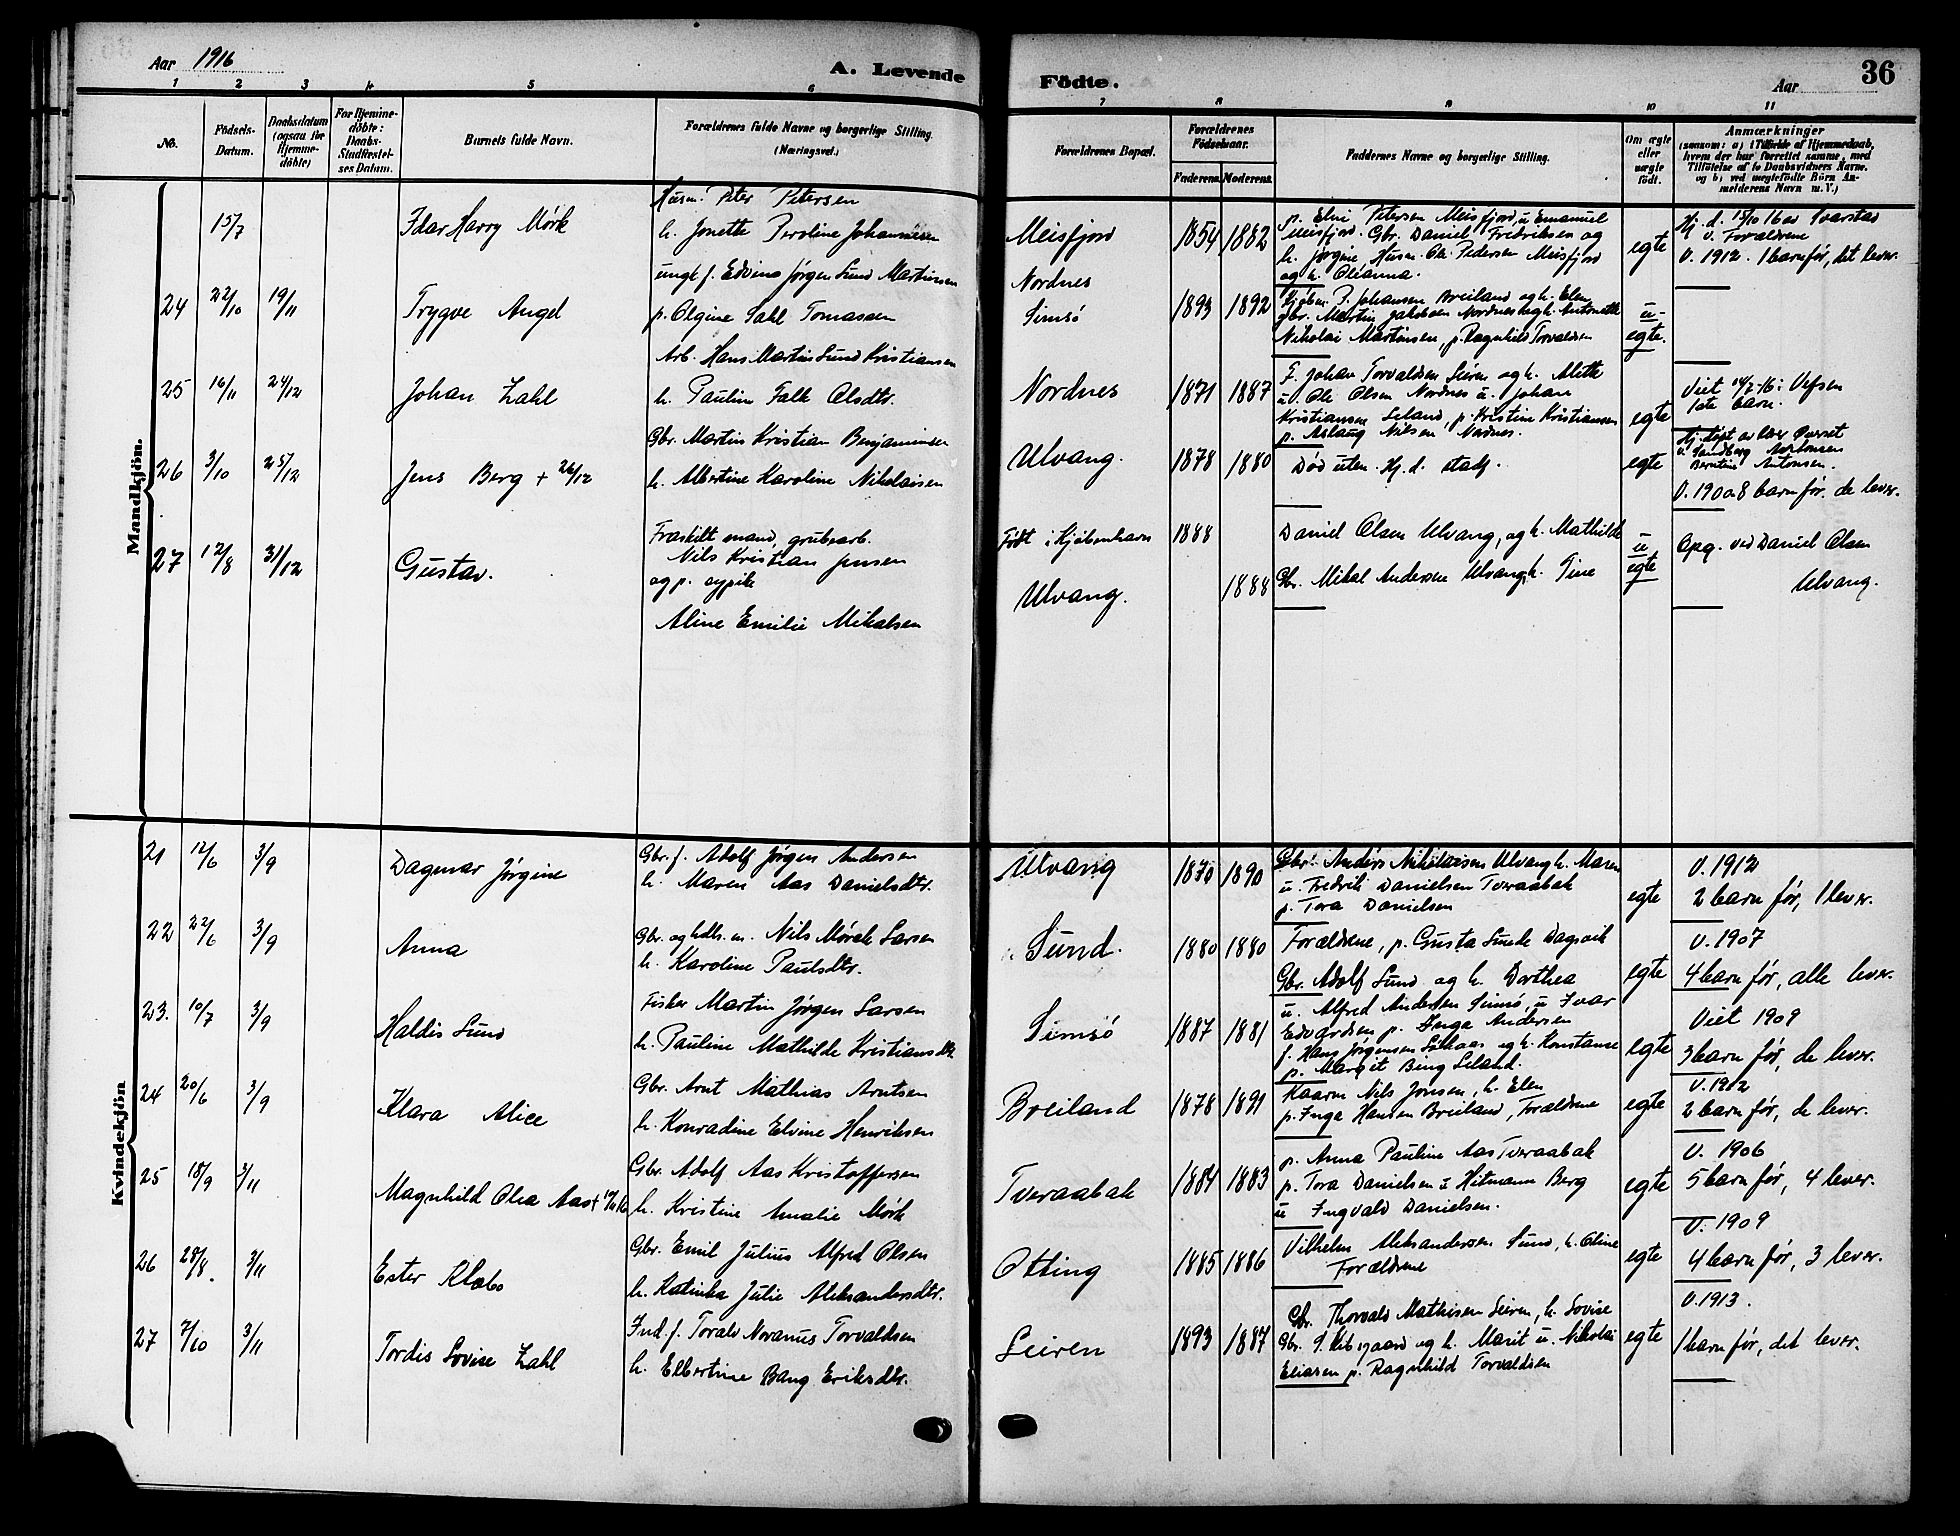 Aar 1916
A. Levende
1 2 3 4 5 6
No.
Födsels-Datum.
Daabsdatum (ogsaa for Hjemmedöbte)
For Hjemmedöbte: Daabs-Stadfæstelses Datum.
Barnets fulde Navn.
Forældrenes fulde Navne og borgerlige Stilling. (Næringsvei.)
Mandkjön.
15/7 Idar Harry Mörk
Husm. Peter Petersen
h. Jonette Peroline Johannesen
24 22/10 19/11 Trygve Angel
ungk. f. Edvins Jørgen Sund Martinsen
p. Olgine Dahl Tomassen
25 16/11 24/12 Johan Zahl
Arb. Hans Martin Sund Kristiansen
h. Pauline Falk Olsdtr.
26 3/10 25/12 Jens Berg + 26/12
Gbr. Martin Kristian Benjaminsen
h. Albertine Karoline Nikolaisen
27 12/8 31/12 Gustav.
Fraskilt mand, grubearb.
Nils Kristian Jensen
og p. sypike
Aline Emilie Mikalsen
Kvindekjön
21 12/6 3/9 Dagmar Jørgine
Gbr. f. Adolf Jørgen Andersen
h. Maren Aas Danielsdtr.
22 22/6 3/9 Anna
Gbr. og hdls.m. Nils Mörch Larsen
h. Karoline Paulsdtr.
23. 10/7 3/9 Haldis Sund
Fisker Martin Jørgen Larsen
h. Pauline Mathilde Kristiansdtr
24 20/6 3/9 Klara Alice
Gbr. Arnt Mathias Arntsen
h. Konradine Elvine Henriksen
25 18/9 3/11 Magnhild Olea Aas +
Gbr. Adolf Aas Kristoffersen
h. Kristine Amalie Mörk
26 28/8. 3/11 Ester Klæbo
Gbr. Emil Julius Alfred Olsen
h. Katinka Julie Aleksandersdtr.
27 7/10 3/11 Tordis Lovise Zahl
Ind. f. Toralv Noranus Torvaldsen
h. Elbertine Bang Eriksdtr.
Födte.
Aar
36
7 8 9 10 11
Forældrenes Bopæl.
Forældrenes Födselsaar.
Faderens Moderens
Faddernes Navne og borgerlige Stilling.
Om ægte eller uægte født.
Anmærkninger
(saasom: a) i Tilfælde af Hjemmedaab,
hvem der har forrettet samme, med
Tilföielse af to Daabsvidners Navne.
og b) ved uægtefödte Börn An-
melderens Navn m. V.)
Meisfjord 1854 1882
p. Elvi Petersen Meisfjord u Emanuel
Meisfjord. Gbr. Daniel Fredriksen og
h. Jørgine, Husm. Ole Pedersen Meisfjord
og h. Oleanna.
egte
Hj. d. 15/10 16 av Ivarstad
v. Forældrene
V. 1912. 1 barn før, det lever.
Nordnes
Simsö 1893 1892
Kjøbm. P. Johansen Breiland og h. Elen
gbr. Martin Jakobsen Nordnes og h. Antonette
Nikolai Martinsen, p. Ragnhild Torvaldsen
u-
egte.
Nordnes 1871 1887
F. Johan Torvaldsen Leiren og h. Alette
u. Ole Olsen Nordnes u. Johan
Kristiansen Leland, p. Kristine Kristiansen
p. Aslaug Nilsen Nordnes.
egte
Viet 14/7-16 i Vefsen
1ste barn.
Ulvang. 1878 1880
Död uten Hj. d. stadf.
egte
Hj. døpt av
v. Sandberg Antonsen
Berntine Antonsen.
V. 1900 8 barn før. de lever.
Født i Kjøbenhavn 1888
Daniel Olsen Ulvang, og h. Mathilde
u
egte
Opg. ved Daniel Olsen
Ulvang.
Ulvang. 1888
Gbr. Mikal Andersen Ulvang, h. Tine
Ulvang 1870 1890
Gbr. Anders Nikolaisen Ulvang h. Maren
u. Fredrik Danielsen Tveraabak
p. Tora Danielsen
egte
V. 1912
2 barn før, 1 lever.
Sund. 1880 1880
Forældrene, p. Gusta Sunde Dagsvik
Gbr. Adolf Sund og h. Dorthea
egte
V. 1907
4 barn før, alle lever.
Simsö 1887 1881
u. Alfred Andersen Simsö, u Ivar
Edvardsen p. Inga Andersen
f. Hans Jørgensen Solhaas og h. Konstanse
p. Margit Bing Leland.
egte
Viet 1909
3 barn før, de lever.
Breiland 1878 1891
Kaarm Nils Jonsen, h. Elen
p. Inga Hansen Breiland, Forældrene
egte
V. 1912
2 barn før, de lever.
Tveraabak 1884 1883
p. Anna Pauline Aas Tveraabak
p. Tora Danielsen u Hitmann Berg
u Ingvald Danielsen.
egte
V. 1906
5 barn før, 4 lever.
Otting 1885 1886
Vilhelm Aleksandersen Sund, h. Oline
Forældrene
egte
V. 1909
4 barn før, 3 lever.
Leiren 1893 1887
Gbr. Thorvald Mathisen Leiren, h. Lovise
Gbr. og h. Marit u. Nikolai
Eliasen p. Ragnhild Torvaldsen
egte
V. 1913.
1 barn før, det lever.